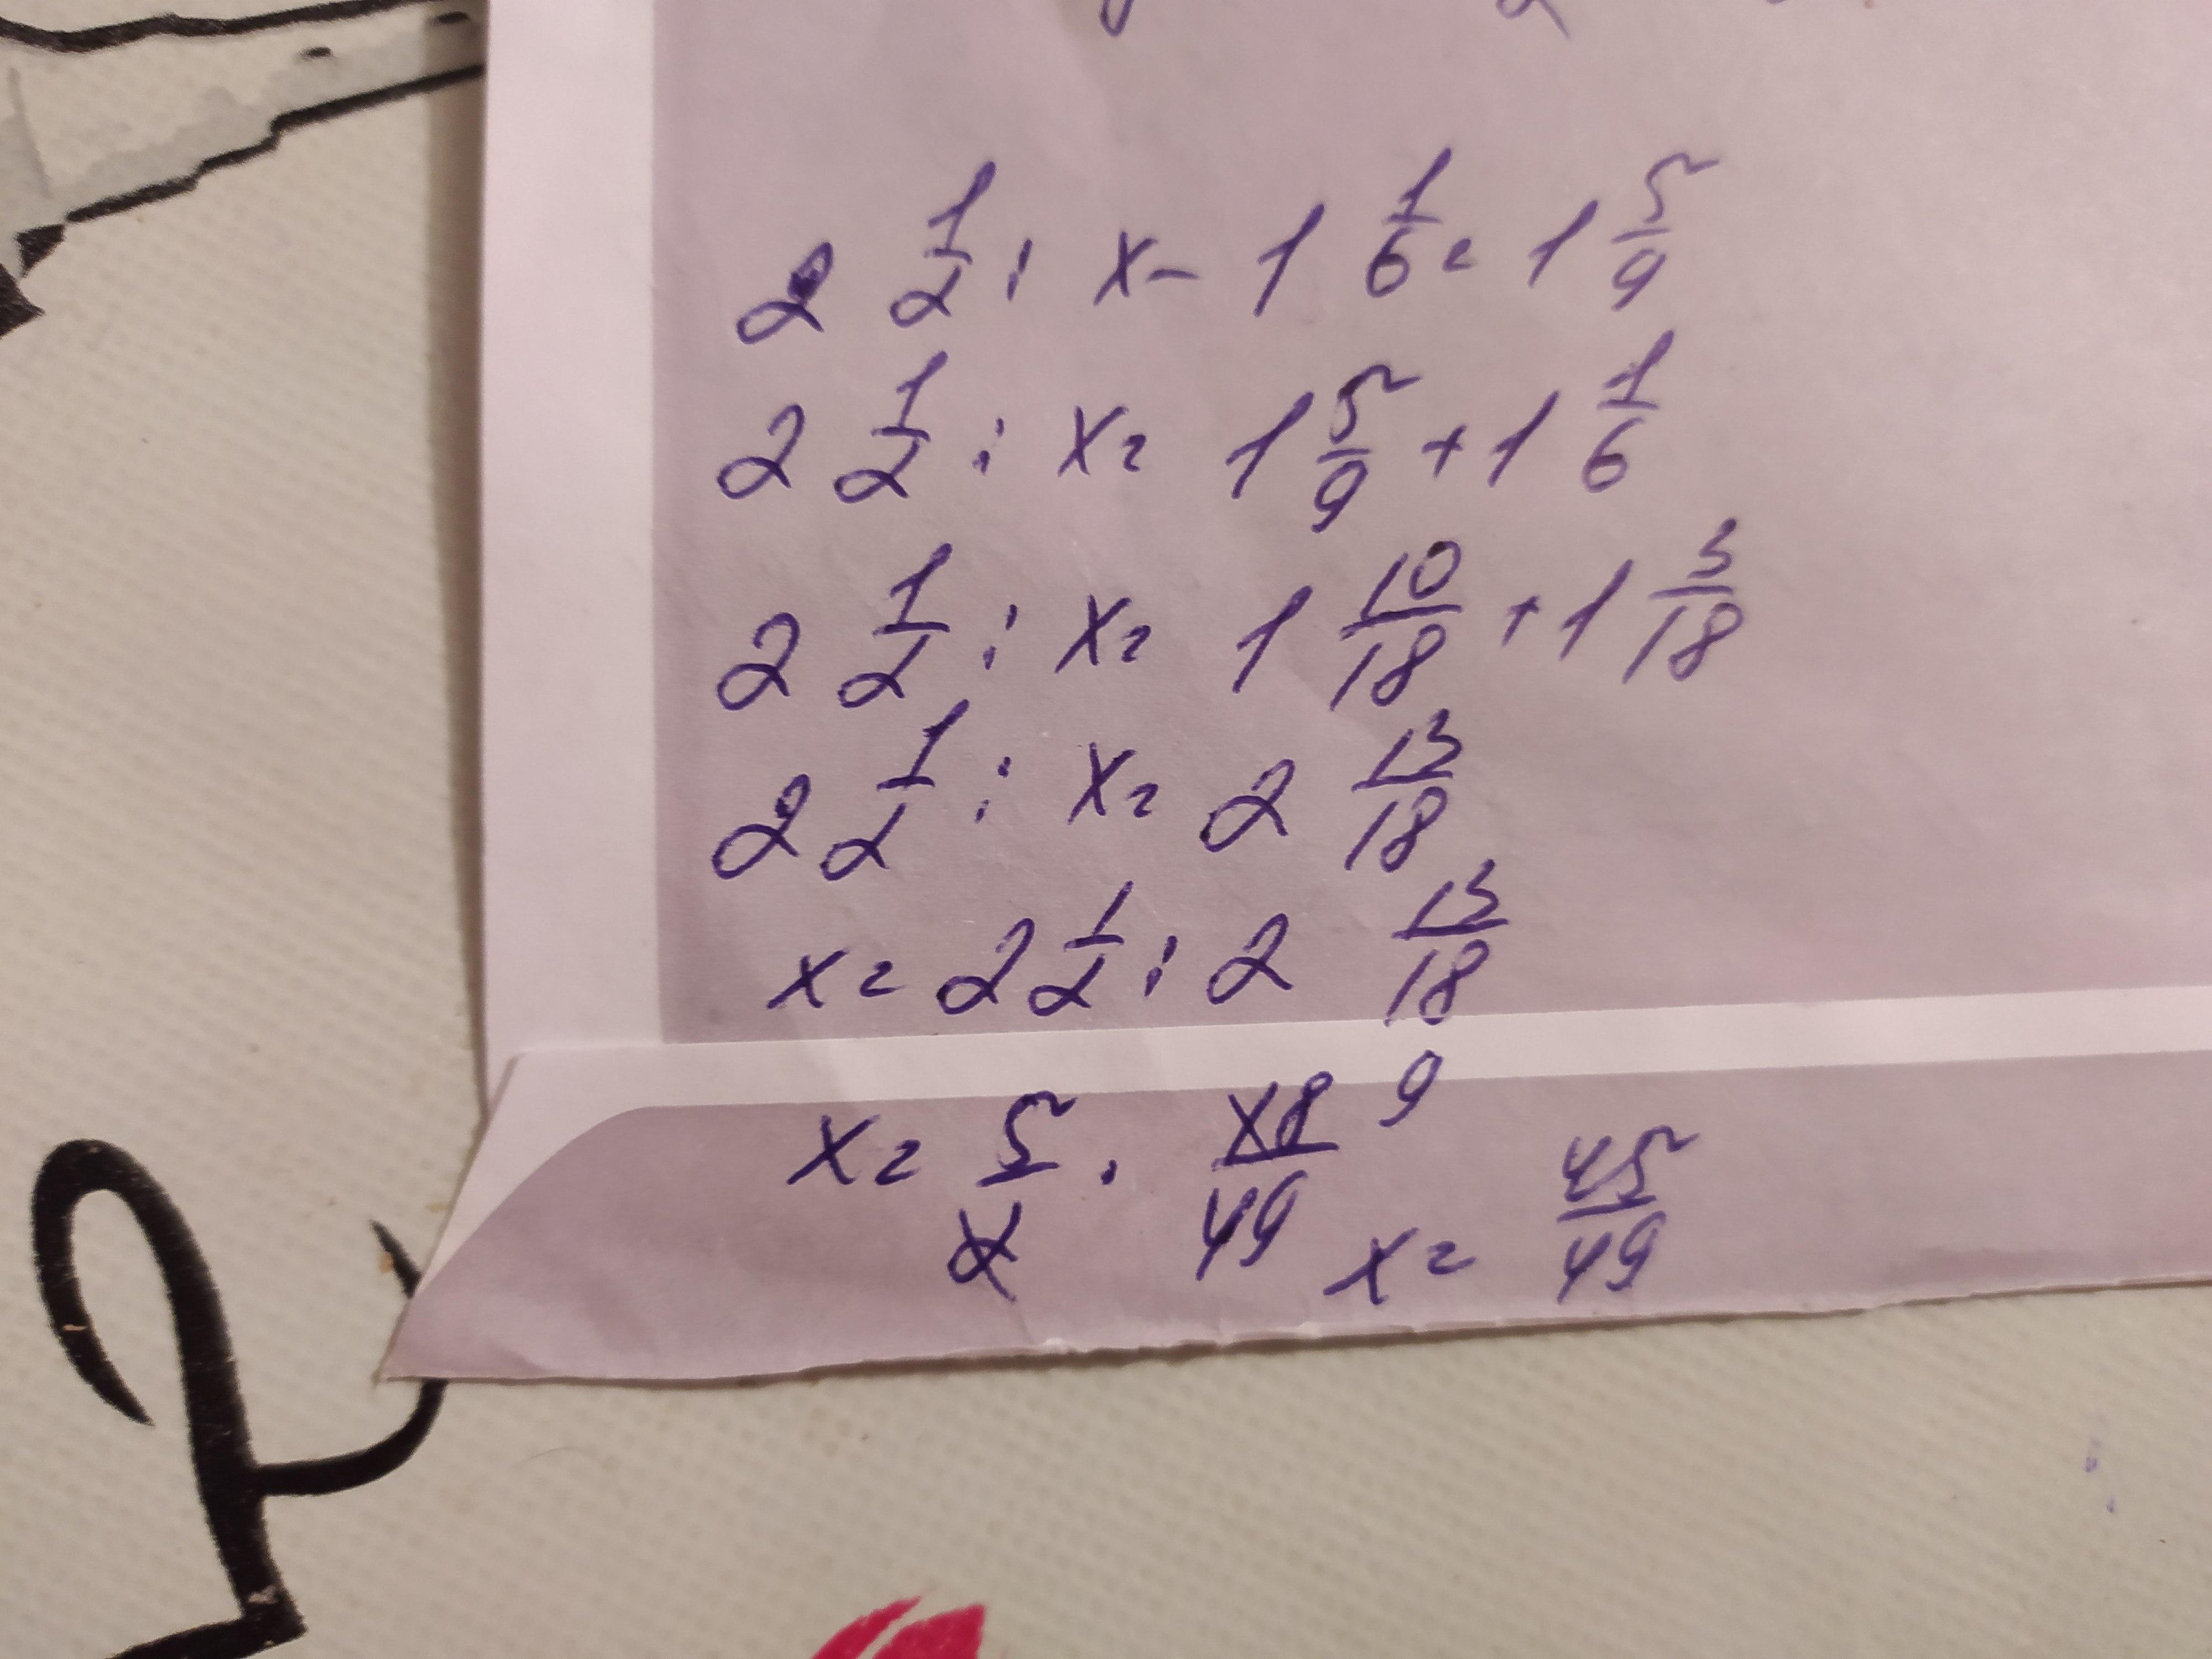 2 1/2 : x - 1 1/6 = 1 5/9
2 1/2 : x = 1 5/9 + 1 1/6
2 1/2 : x = 1 10/18 + 1 3/18
2 1/2 : x = 2 13/18
x = 2 1/2 : 2 13/18
x = 5/2 · 18/49 9
x = 45/49